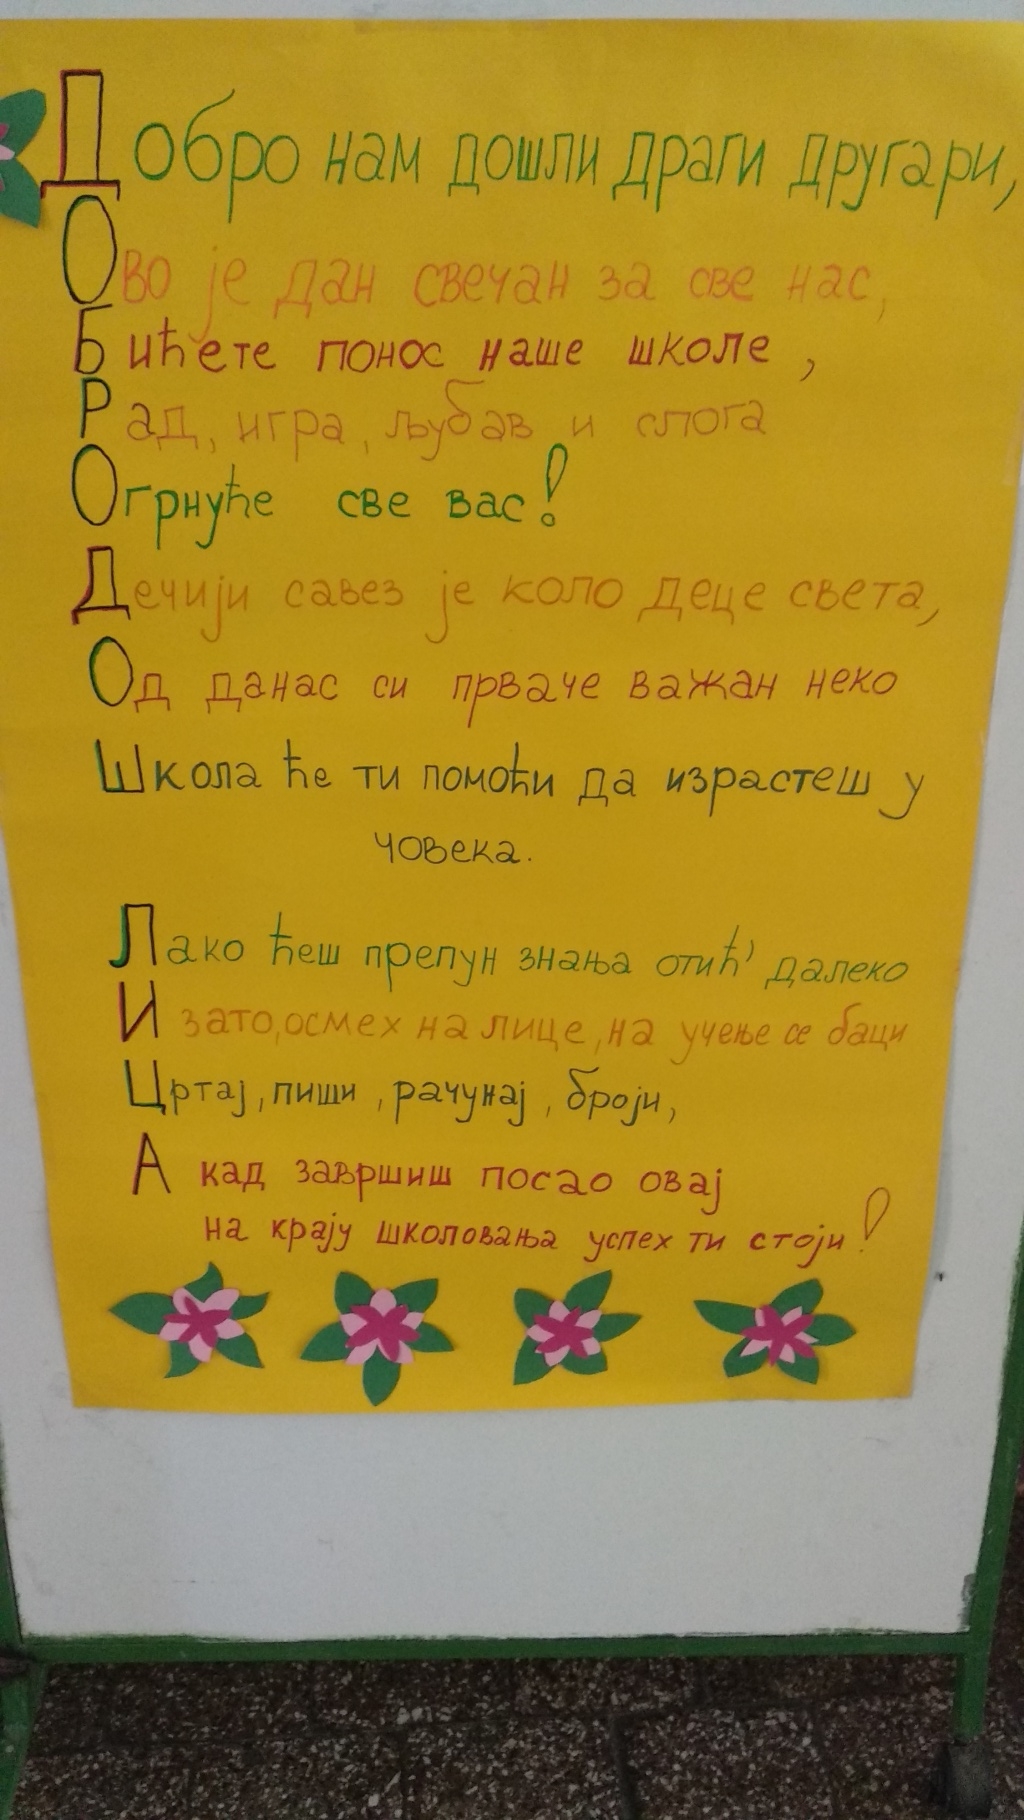 Добро нам дошли драги другари,
Ово је дан свечан за све нас,
Бићете понос наше школе,
Рад, игра, љубав и слога
Огрнуће све вас!
Дечији савез је коло деце света,
Од данас си прваче важан неко
Школа ће ти помоћи да израстеш у
човека.
Лако ћеш препун знања отић' далеко
И зато, осмех на лице, на учење се баци
Цртај, пиши, рачунај, броји,
А кад завршиш посао овај
на крају школовања успех ти стоји!